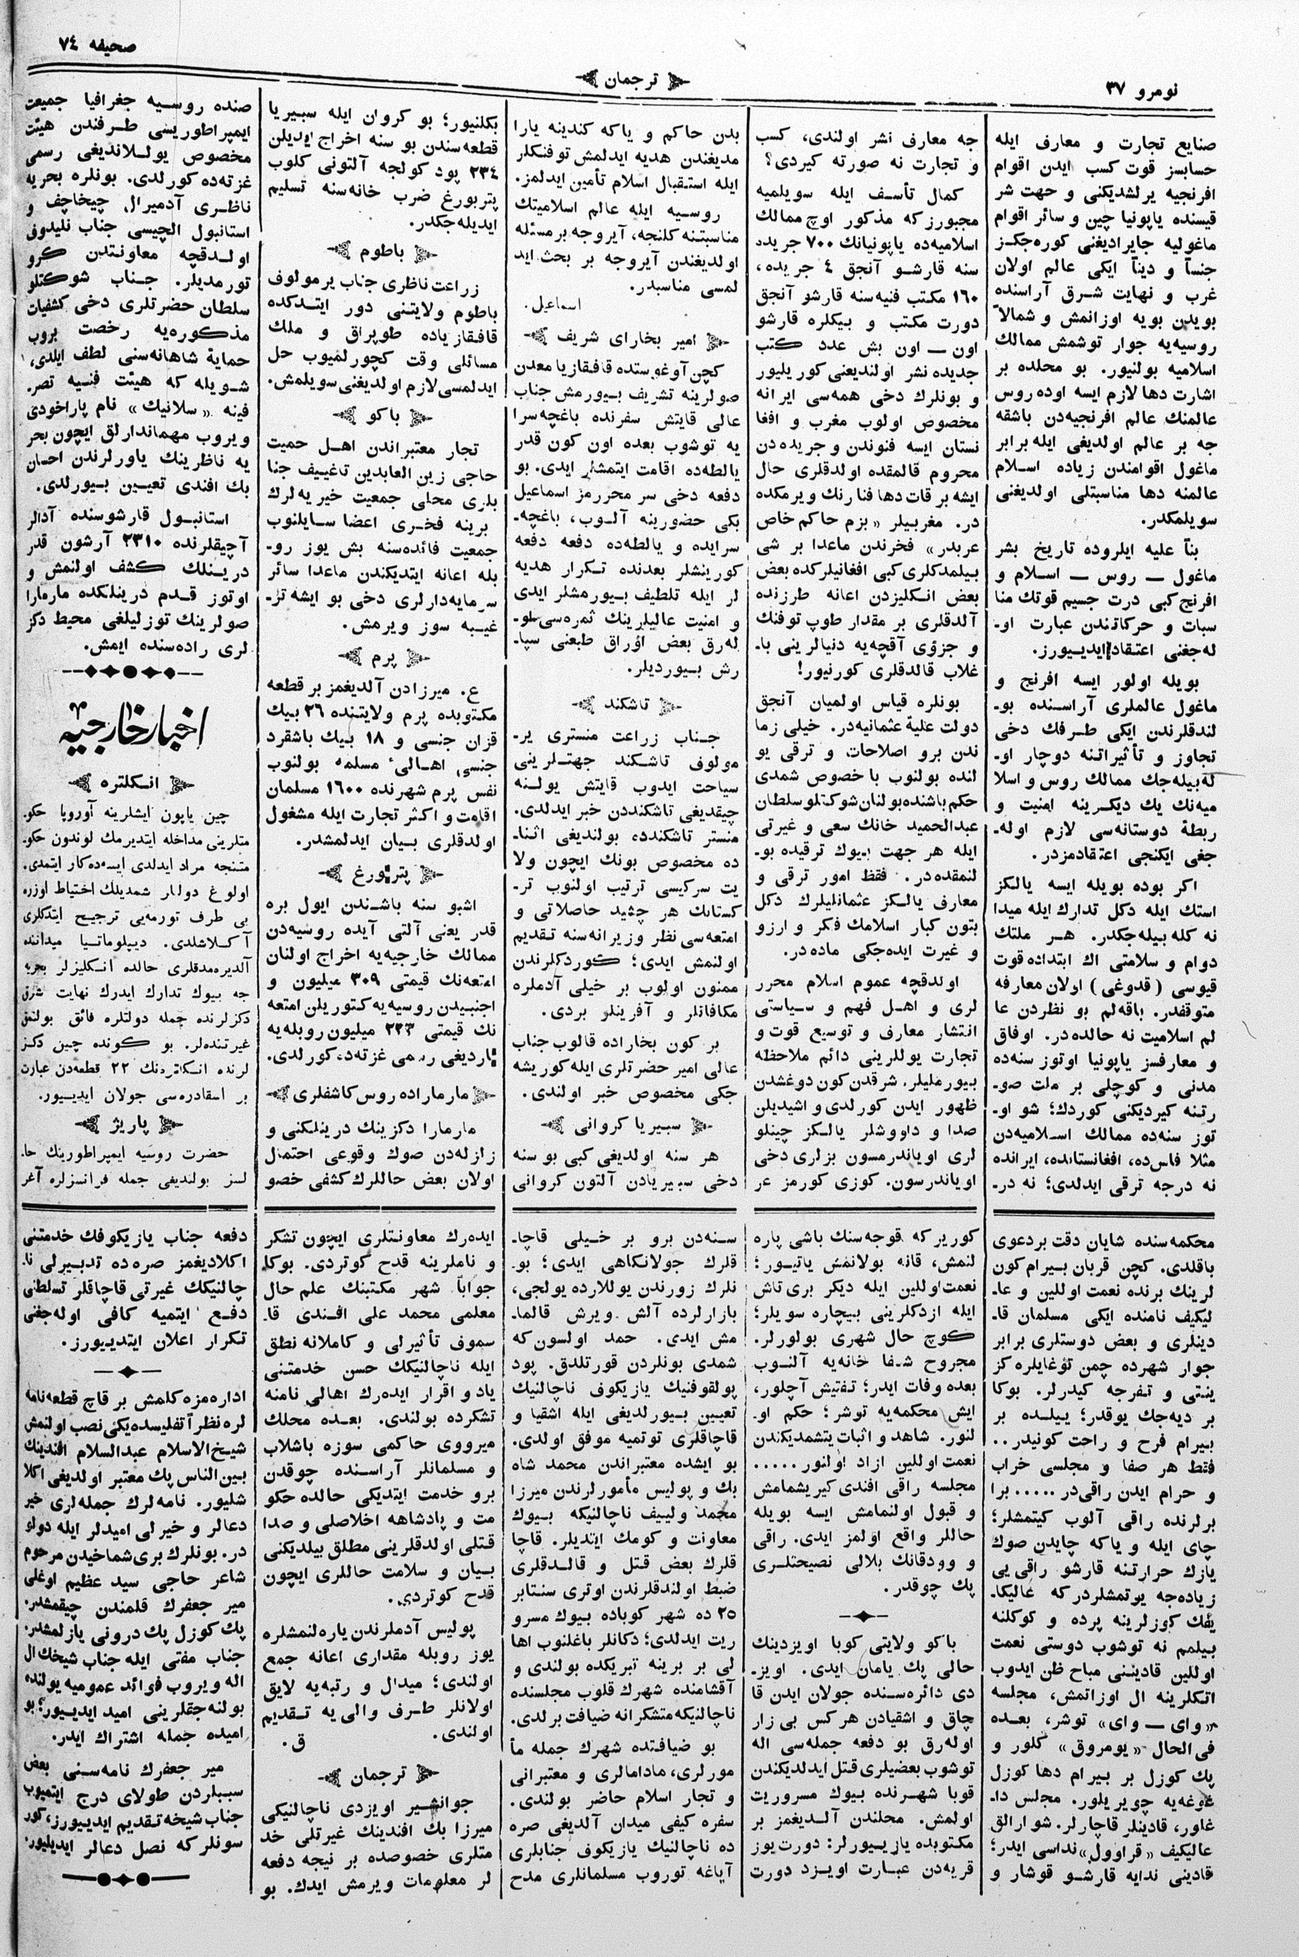 نومرو ٣٧
ترجمان
صحیفه ٧٤
صنایع تجارت و معارف ایله
حسابسز قوت كسب ایدن اقوام
افرنجیه یرلشدیكنی و جهت شر
قیسنده یاپونیا چین و سائر اقوام
ماغولیه جایرادیغنی كوره‌جكز
جنساً و دیناً ایكی عالم اولان
غرب و نهایت شرق آراسنده
بویدن بویه اوزانمش و شمالاً
روسیه‌یه جوار توشمش ممالك
اسلامیه بولنیور. بو محلده بر
اشارت دها لازم ایسه اوده روس
عالمنك عالم افرنجیه‌دن باشقه
جه بر عالم اولدیغی ایله برابر
ماغول اقوامندن زیاده اسلام
عالمنه دها مناسبتلی اولدیغنی
سویلمكدر.
بناً علیه ایلروده تاریخ بشر
ماغول — روس — اسلام و
افرنج كبی درت جسیم قوتك منا
سبات و حركاتندن عبارت او-
له‌جغنی اعتقاد ایدییورز.
بویله اولور ایسه افرنج و
ماغول عالملری آراسنده بو-
لندقلرندن ایكی طرفك دخی
تجاوز و تأثیراتنه دوچار او-
له‌بیله‌جك ممالك روس و اسلا
میه‌نك یك دیكرینه امنیت و
ربطۀ دوستانه‌سی لازم اوله-
جغی ایكنجی اعتقادمزدر.
اكر بوده بویله ایسه یالكز
استك ایله دكل تدارك ایله میدا
نه كله بیله‌جكدر. هر ملتك
دوام و سلامتی اك ابتداده قوت
قپوسی (قدوغی) اولان معارفه
متوقفدر. باقه‌لم بو نظردن عا
لم اسلامیت نه حالده‌در. اوفاق
و معارفسز یاپونیا اوتوز سنه‌ده
مدنی و كوچلی بر ملت صو-
رتنه كیردیكنی كوردك؛ شو او-
توز سنه‌ده ممالك اسلامیه‌دن
مثلا فاس‌ده، افغانستانده، ایرانده
نه درجه ترقی ایدلدی؛ نه در-
جه معارف نشر اولندی، كسب
و تجارت نه صورته كیردی؟
كمال تأسف ایله سویلمیه
مجبورز كه مذكور اوچ ممالك
اسلامیه‌ده یاپونیانك ٧٠٠ جریده
سنه قارشو آنجق ٤ جریده،
١٦٠ مكتب فنیه‌سنه قارشو آنجق
دورت مكتب و بیكلره قارشو
اون — اون بش عدد كتب
جدیده نشر اولندیعنی كوریلیور
و بونلرك دخی همه‌سی ایرانه
مخصوص اولوب مغرب و افغا
نستان ایسه فنوندن و جریده دن
محروم قالمقده اولدقلری حال
ایشه بر قات دها فنا رنك ویرمكده
در. مغربیلر «بزم حاكم خاص
عربدر» فخرندن ماعدا بر شی
بیلمدكلری كبی افغانیلركده بعض
بعض انكلیزدن اعانه طرزنده
آلدقلری بر مقدار طوپ توفنك
و جزؤی آقچه‌یه دنیالرینی با-
غلاب قالدقلری كورنیور!
بونلره قیاس اولمیان آنجق
دولت علیۀ عثمانیه‌در. خیلی زما
ندن برو اصلاحات و ترقی یو
لنده بولنوب با خصوص شمدی
حكم باشنده بولنان شوكتلو سلطان
عبدالحمید خانك سعی و غیرتی
ایله هر جهت بیوك ترقیده بو-
لنمقده‌در. فقط امور ترقی و
معارف یالكز عثمانلیلرك دكل
بتون كبار اسلامك فكر و ارزو
و غیرت ایده‌جكی ماده در.
اولدقچه عموم اسلام محرر
لری و اهل فهم و سیاستی
انتشار معارف و توسیع قوت و
تجارت یوللرینی دائم ملاحظه
بیورملیلر. شرقدن كون دوغشدن
ظهور ایدن كورلدی و اشیدیلن
صدا و داووشلر یالكز چینلو
لری اویاندرمسون بزلری دخی
اویاندرسون. كوزی كورمز عر
بدن حاكم و یاكه كندینه یارا
مدیغندن هدیه ایدلمش توفنكلر
ایله استقبال اسلام تأمین ایدلمز.
روسیه ایله عالم اسلامیتك
مناسبتنه كلنجه، آیروجه بر مسئله
اولدیغندن آیروجه بر بحث اید
لمسی مناسبدر.
اسماعیل.
امیر بخارای شریف
كچن آوغوستده قافقازیا معدن
صولرینه تشریف بیورمش جناب
عالی قایتش سفرنده باغچه‌سرا
یه توشوب بعده اون كون قدر
یالطه‌ده اقامت ایتمشلر ایدی. بو
دفعه دخی سر محررمز اسماعیل
بكی حضورینه آلوب، باغچه-
سرایده و یالطه‌ده دفعه دفعه
كورینشلر بعدنده تكرار هدیه
لر ایله تلطیف بیورمشلر ایدی
و امنیت عالیلرینك ثمره‌سی‌او-
له‌رق بعض اؤراق طبعنی سپا-
رش بیوردیلر.
تاشكند
جناب زراعت منستری یر-
مولوف تاشكند جهتلرینی
سیاحت ایدوب قایتش یولنه
چیقدیغی تاشكنددن خبر ایدلدی.
منستر تاشكنده بولندیغی اثنا-
ده مخصوص بونك ایچون ولا
یت سركیسی ترتیب اولنوب تر-
كستانك هر چشید حاصلاتی و
امتعه‌سی نظر وزیرانه‌سنه تقدیم
اولنمش ایدی؛ كوردكلرندن
ممنون اولوب بر خیلی آدملره
مكافاتلر و آفرینلو بردی.
بر كون بخاراده قالوب جناب
عالی امیر حضرتلری ایله كوریشه
جكی مخصوص خبر اولندی.
سبیریا كروانی
هر سنه اولدیغی كبی بو سنه
دخی سبیریادن آلتون كروانی
بكلنیور؛ بو كروان ایله سبیریا
قطعه‌سندن بو سنه اخراج ایدیلن
٢٣٤ پود كولجه آلتونی كلوب
پتربورغ ضرب خانه‌سنه تسلیم
ایدیله‌جكدر.
باطوم
زراعت ناظری جناب یرمولوف
باطوم ولایتنی دور ایتدكده
قافقازیاده طوپراق و ملك
مسائلی وقت كچورلمیوب حل
ایدلمسی لازم اولدیغنی سویلمش.
باكو
تجار معتبراندن اهل حمیت
حاجی زین العابدین تاغییف جنا
بلری محلی جمعیت خیریه‌لرك
برینه فخری اعضا سایلنوب
جمعیت فائده‌سنه بش یوز رو-
بله اعانه ایتدیكندن ماعدا سائر
سرمایه‌دارلری دخی بو ایشه تر-
غیبه سوز ویرمش.
پرم
ع. میرزادن آلدیغمز بر قطعه
مكتوبده پرم ولایتنده ٢٦ بیك
قزان جنسی و ١٨ بیك باشقرد
جنسی اهالیء مسلمه بولنوب
نفس پرم شهرنده ١٦٠٠ مسلمان
اقامت و اكثر تجارت ایله مشغول
اولدقلری بیان ایدلمشدر.
پتربورغ
اشبو سنه باشندن ایول بره
قدر یعنی آلتی آیده روسیه‌دن
ممالك خارجیه‌یه اخراج اولنان
امتعه‌نك قیمتی ٣٠٩ میلیون و
اجنبیدن روسیه‌یه كتوریلن امتعه
نك قیمتی ٢٢٣ میلیون روبله‌یه
باردیغی رسمی غزته‌ده كورلدی.
مارماراده روس كاشفلری
مارمارا دكزینك درینلكنی و
زلزله‌دن صوك وقوعی احتمال
اولان بعض حاللرك كشفی خصو
صنده روسیه جغرافیا جمیعت
ایمپراطوریسی طرفندن هیئت
مخصوص یوللاندیغی رسمی
غزته‌ده كورلدی. بونلره بحریه
ناظری آدمیرال چیخاچف و
استانبول الچیسی جناب نلیدوف
اولدقچه معاونتدن كرو
تورمدیلر. جناب شوكتلو
سلطان حضرتلری دخی كشفیات
مذكوره‌یه رخصت یروب
حمایۀ شاهانه‌سنی لطف ایلدی،
شویله كه هیئت فنیه تصر-
فینه «سلانیك» نام پاراخودی
ویروب مهماندارلق ایچون بحر
یه ناظرینك یاورلرندن احسان
بك افندی تعیین بیورلدی.
استانبول قارشوسنده آدالر
آچیقلرنده ٢٣١٠ آرشون قدر
درینلك كشف اولنمش و
اوتوز قدم درینلكده مارمارا
صولرینك توزلیلغی محیط دكز
لری راده‌سنده ایمش.
اخبار خارجیه
انكلتره
چین یاپون ایشلرینه آوروپا حكو
متلرینی مداخله ایتدیرمك لوندون حكو-
متنجه مراد ایدلدی ایسه‌ده كار ایتمدی.
اولوغ دولتلر شمدیلك اختیاط اوزره
بی طرف تورمه‌یی ترجیح ایتدكلری
آكلاشلدی. دیپلوماتیا میداننده
آلدیره‌مدقلری حالده انكلیزلر بحریه
جه بیوك تدارك ایدرك نهایت شرق
دكزلرنده جمله دولتلره فائق بولنمق
غیرتنده‌لر. بو كونده چین دكز
لرنده انكلتره‌نك ٢٢ قطعه‌دن عبارت
بر اسقادره‌سی جولان ایدییور.
پاریژ
حضرت روسیه ایمپراطورینك حا-
لسز بولندیغی جمله فرانسزلره آغر
محكمه‌سنده شایان دقت بر دعوی
باقلدی. كچن قربان بیرام كون
لرینك برنده نعمت اوللین و عا-
لیكیف نامنده ایكی مسلمان قا-
دینلری و بعض دوستلری برابر
جوار شهرده چمن توغایلره كز
ینتی و تفرجه كیدرلر. بوكا
بر دیه‌جك یوقدر؛ ییلده بر
بیرام فرح و راحت كونیدر..
فقط هر صفا و مجلسی خراب
و حرام ایدن راقی‌در ..... بزا
برلرنده راقی آلوب كیتمشلر؛
چای ایله و یاكه چایدن صوك
یازك حرارتنه قارشو راقی یی
زیاده‌جه یوتمشلردر كه عالیكا-
یفك كوزلرینه پرده و كوكلنه
بیلمم نه توشوب دوستی نعمت
اوللین قادیننی مباح ظن ایدوب
اتكلرینه ال اوزاتمش، مجلسه
«وای — وای» توشر، بعده
فی الحال «یومروق» كلور و
پك كوزل بر بیرام دها كوزل
غوغه‌یه چویریلور. مجلس دا-
غلور، قادینلر قاچارلر. شوارالق
عالیكیف «قراوول» نداسی ایدر؛
قادینی ندایه قارشو قوشار و
كوریر كه قوجه‌سنك باشی پاره
لنمش، قانه بولانمش یاتیور؛
نعمت اوللین ایله دیكر بری تاش
ایله ازدكلرینی بیچاره سویلر؛
كوچ حال شهری بولورلر.
مجروح شفا خانه‌یه آلنوب
بعده وفات ایدر؛ تفتیش آچلور،
ایش محكمه‌یه توشر؛ حكم او-
لنور. شاهد و اثبات یتشمدیكندن
نعمت اوللین ازاد اولنور.....
مجلسه راقی افندی كیریشمامش
و قبول اولنمامش ایسه بویله
حاللر واقع اولمز ایدی. راقی
و وودقانك بلالی نصیحتلری
پك چوقدر.
باكو ولایتی كوبا اویزدینك
حالی پك یامان ایدی. اویز-
دی دائره‌سنده جولان ایدن قا
چاق و اشقیادن هركس بی زار
اوله‌رق بو دفعه جمله‌سی اله
توشوب بعضیلری قتل ایدلدیكندن
قوبا شهرنده بیوك مسروریت
اولمش. محلندن آلدیغمز بر
مكتوبده یازییورلر: دورت یوز
قریه‌دن عبارت اویزد دورت
سنه‌دن برو بر خیلی قاچا-
قلرك جولانكاهی ایدی؛ بو-
نلرك زورندن یوللارده یولجی،
بازارلرده آلش ویرش قالما-
مش ایدی. حمد اولسون كه
شمدی بونلردن قورتلدق. پود
پولقوفنیك یازیكوف ناچالنیك
تعیین بیورلدیغی ایله اشقیا و
قاچاقلری توتمیه موفق اولدی.
بو ایشده معتبراندن محمد شاه
بك و پولیس مأمورلرندن میرزا
محمد ولییف ناچالنیكه بیوك
معاونت و كومك ایتدیلر. قاچا
قلرك بعض قتل و قالدقلری
ضبط اولندقلرندن اوتری سنتابر
٢٥ ده شهر كوباده بیوك مسرو
ریت ایدلدی؛ دكانلر باغلنوب اها
لی بر برینه تبریكده بولندی و
آقشامنده شهرك قلوب مجلسنده
ناچالنیكه متشكرانه ضیافت برلدی.
بو ضیافتده شهرك جمله مأ
مورلری، مادامالری و معتبرانی
و تجار اسلام حاضر بولندی.
سفره كیفی میدان آلدیغی صره
ده ناچالنیك یازیكوف جنابلری
آیاغه توروب مسلمانلری مدح
ایده‌رك معاونتلری ایچون تشكر
و ناملرینه قدح كوتردی. بوكا
جواباً شهر مكتبنك علم حال
معلمی محمد علی افندی قا-
سموف تأثیرلی و كاملانه نطق
ایله ناچالنیكك حسن خدمتنی
یاد و اقرار ایده‌رك اهالی نامنه
تشكرده بولندی. بعده محلك
میرووی حاكمی سوزه باشلاب
و مسلمانلر آراسنده چوقدن
برو خدمت ایتدیكی حالده حكو
مت و پادشاهه اخلاصلی و صدا
قتلی اولدقلرینی مطلق بیلدیكنی
بیان و سلامت حاللری ایچون
قدح كوتردی.
پولیس آدملرندن یاره‌لنمشلره
یوز روبله مقداری اعانه جمع
اولندی؛ میدال و رتبه‌یه لایق
اولانلر طرف والی یه تقدیم
اولندی.
ق.
ترجمان
جوانشیر اویزدی ناچالنیكی
میرزا بك افندینك غیرتلی خد
متلری خصوصده بر نیجه دفعه
لر معلومات ویرمش ایدك. بو
دفعه جناب یازیكوفك خدمتنی
اكلادیغمز صره ده تدبیرلی نا-
چالنیكك غیرتی قاچاقلر تسلطنی
دفع ایتمیه كافی اوله‌جغنی
تكرار اعلان ایتدییورز.
اداره‌مزه كلمش بر قاچ قطعه نامه
لره نظراً تفلیسده یكی نصب اولنمش
شیخ الاسلام عبدالسلام افندینك
بین الناس پك معتبر اولدیغی اكلا
شلیور. نامه‌لرك جمله‌لری خیر
دعالر و خیرلی امیدلر ایله دولو
در. بونلرك بری شماخیدن مرحوم
شاعر حاجی سید عظیم اوغلی
میر جعفرك قلمندن چیقمشدر.
پك كوزل پك درونی یازلمشدر.
جناب مفتی ایله جناب شیخك ال
اله ویروب فوائد عمومیه یولنده
بولنه‌جقلرینی امید ایدییور؛ بو
امیده جمله اشتراك ایدر.
میر جعفرك نامه‌سنی بعض
سببلردن طولای درج ایتمیوب
جناب شیخه تقدیم ایدییورز، كور
سونلر كه نصل دعالر ایدیلیور.